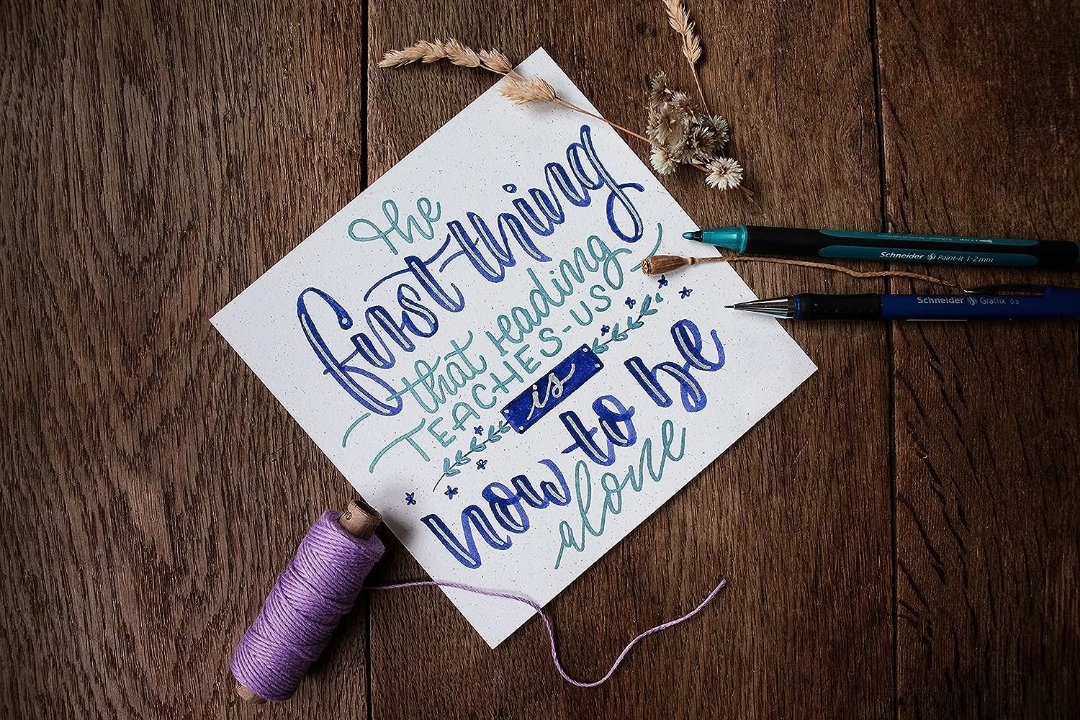 the
first thing
that reading
TEACHES-US
is
how to be
alone
Schneider Paint-it 1-2mm
Schneider Graffix 0.5